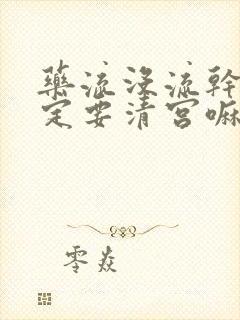 藥流沒流幹
定要清宮嘛
零焱